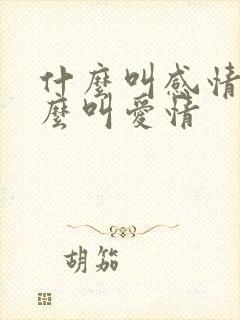 什麼叫感情
麼叫愛情
胡笳